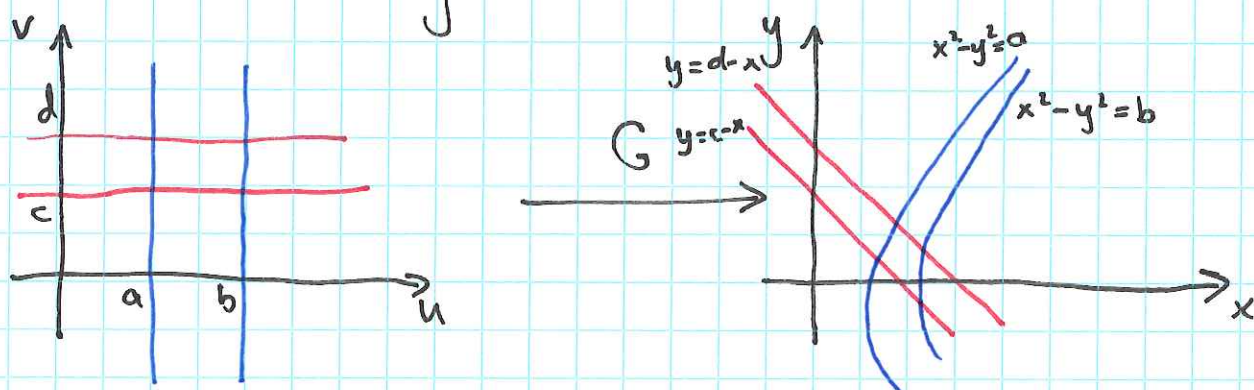 v
d
c
a
b
u
G
y
y=d-x
y=c-x
x²-y²=a
x²-y²=b
x